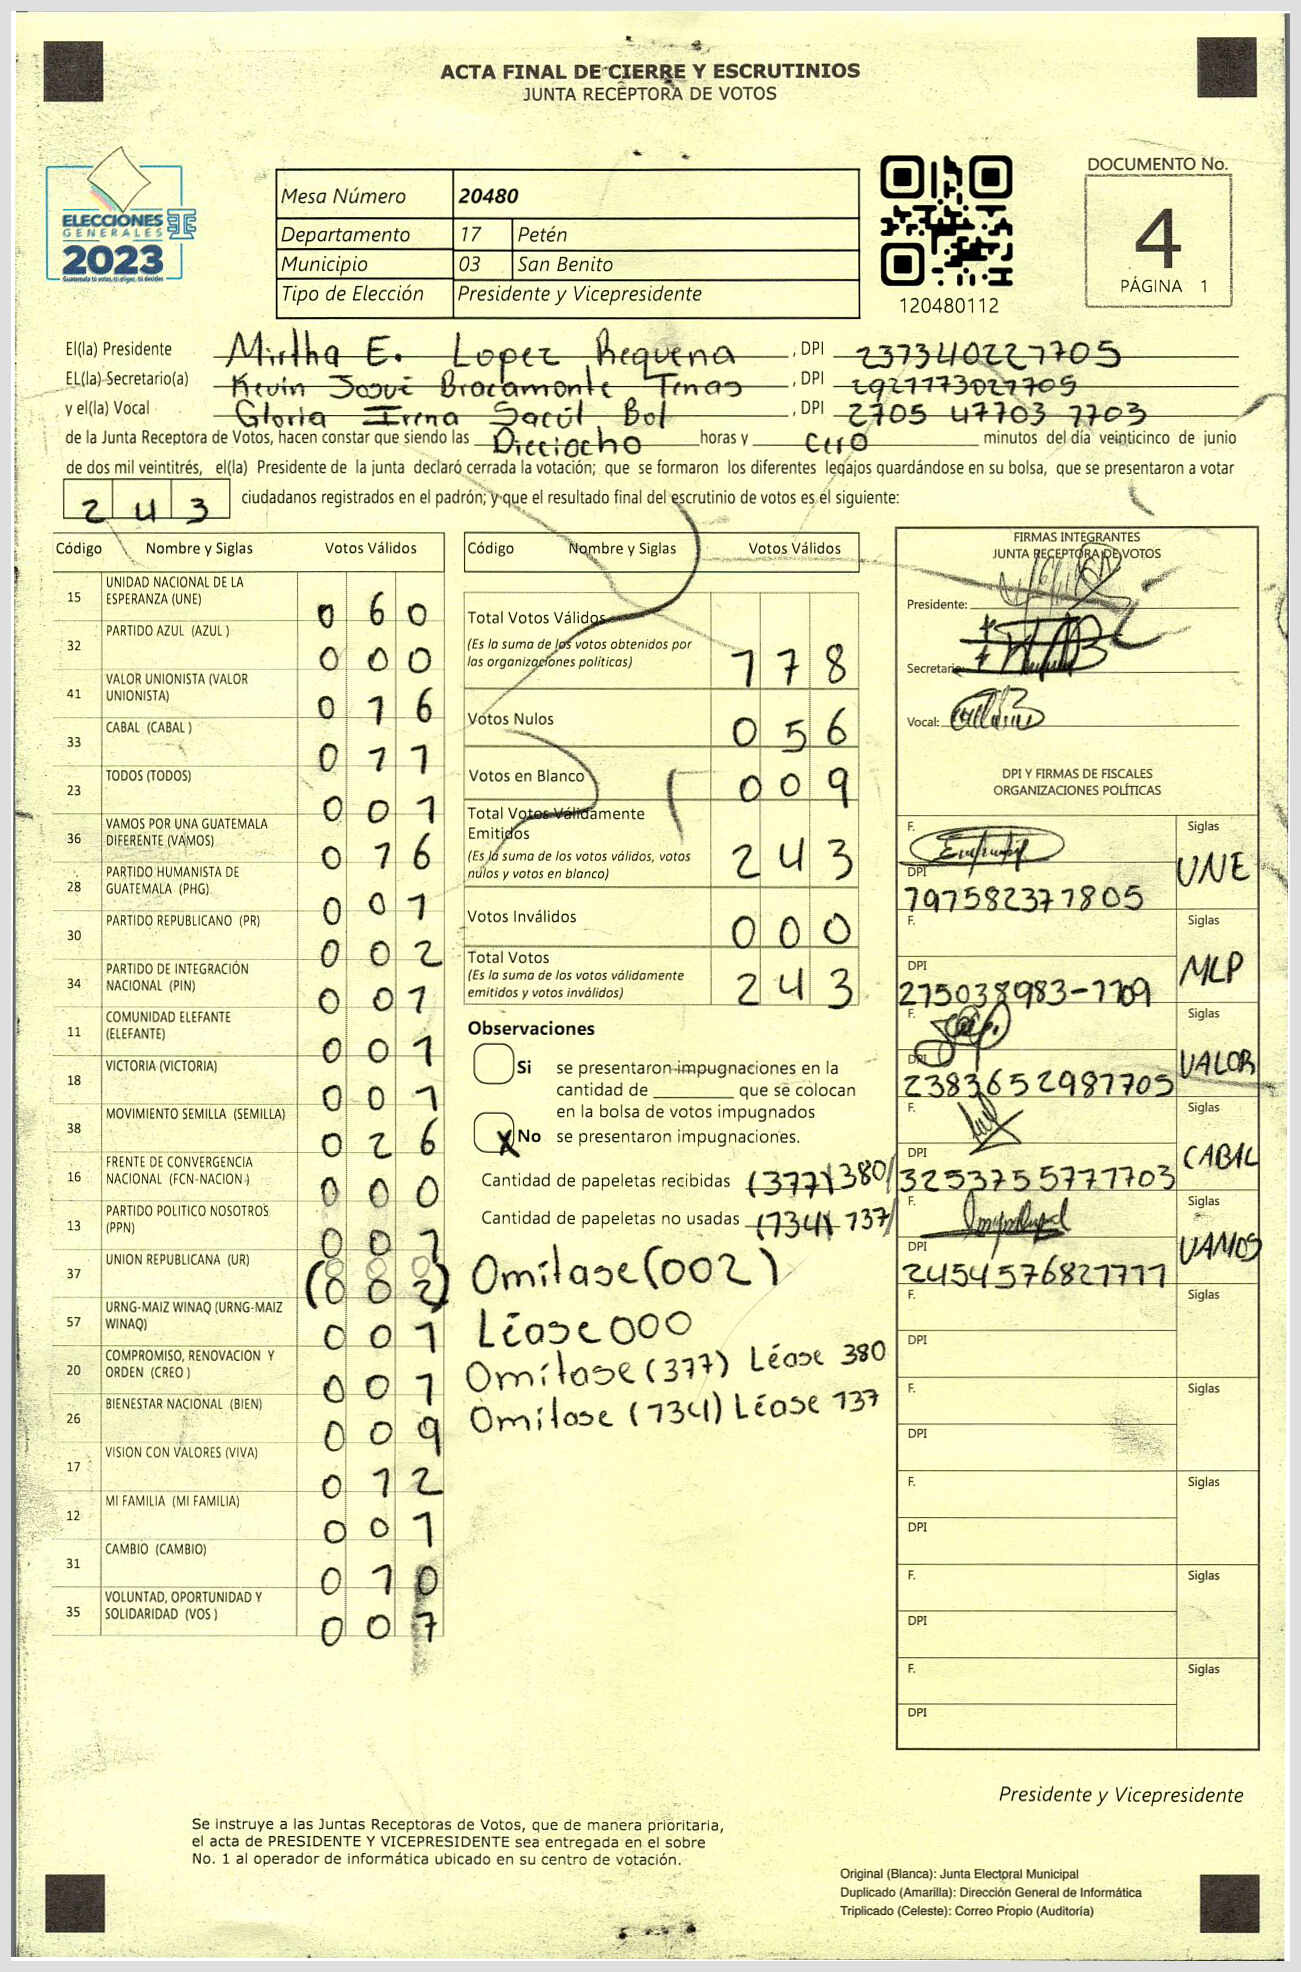 ACTA FINAL DE CIERRE Y ESCRUTINIOS
JUNTA RECEPTORA DE VOTOS
ELECCIONES
GENERALES
2023
Guatemala tú votas, tú eliges, tú decides
Mesa Número 20480
Departamento 17 Petén
Municipio 03 San Benito
Tipo de Elección Presidente y Vicepresidente
120480112
DOCUMENTO No.
4
PÁGINA 1
El(la) Presidente Mirtha E. Lopez Requena , DPI 237340221705
EL(la) Secretario(a) Kevin Josué Bracamonte , DPI
y el(la) Vocal Gloria Irena Sacúl Bol , DPI 2705 47703 1703
de la Junta Receptora de Votos, hacen constar que siendo las Dieciocho horas y cero minutos del día veinticinco de junio
de dos mil veintitrés, el(la) Presidente de la junta declaró cerrada la votación; que se formaron los diferentes legajos guardándose en su bolsa, que se presentaron a votar
243 ciudadanos registrados en el padrón; y que el resultado final del escrutinio de votos es el siguiente:
Código Nombre y Siglas Votos Válidos
15 UNIDAD NACIONAL DE LA ESPERANZA (UNE) 060
32 PARTIDO AZUL (AZUL ) 000
41 VALOR UNIONISTA (VALOR UNIONISTA) 016
33 CABAL (CABAL ) 011
23 TODOS (TODOS) 001
36 VAMOS POR UNA GUATEMALA DIFERENTE (VAMOS) 016
28 PARTIDO HUMANISTA DE GUATEMALA (PHG) 001
30 PARTIDO REPUBLICANO (PR) 002
34 PARTIDO DE INTEGRACIÓN NACIONAL (PIN) 001
11 COMUNIDAD ELEFANTE (ELEFANTE) 001
18 VICTORIA (VICTORIA) 001
38 MOVIMIENTO SEMILLA (SEMILLA) 026
16 FRENTE DE CONVERGENCIA NACIONAL (FCN-NACION ) 000
13 PARTIDO POLITICO NOSOTROS (PPN) 001
37 UNION REPUBLICANA (UR) 000 (002)
57 URNG-MAIZ WINAQ (URNG-MAIZ WINAQ) 001
20 COMPROMISO, RENOVACION Y ORDEN (CREO ) 001
26 BIENESTAR NACIONAL (BIEN) 009
17 VISION CON VALORES (VIVA) 012
12 MI FAMILIA (MI FAMILIA) 001
31 CAMBIO (CAMBIO) 010
35 VOLUNTAD, OPORTUNIDAD Y SOLIDARIDAD (VOS ) 007
Código Nombre y Siglas Votos Válidos
Total Votos Válidos
(Es la suma de los votos obtenidos por
las organizaciones políticas) 178
Votos Nulos 056
Votos en Blanco 009
Total Votos Válidamente
Emitidos
(Es la suma de los votos válidos, votos
nulos y votos en blanco) 243
Votos Inválidos 000
Total Votos
(Es la suma de los votos válidamente
emitidos y votos inválidos) 243
Observaciones
Si se presentaron impugnaciones en la
cantidad de ________ que se colocan
en la bolsa de votos impugnados
X No se presentaron impugnaciones.
Cantidad de papeletas recibidas (377) 380/
Cantidad de papeletas no usadas (134) 137/
Omítase (002)
Léase 000
Omítase (377) Léase 380
Omítase (134) Léase 137
FIRMAS INTEGRANTES
JUNTA RECEPTORA DE VOTOS
Presidente:
Secretario:
Vocal:
DPI Y FIRMAS DE FISCALES
ORGANIZACIONES POLÍTICAS
F. Siglas
DPI UNE
197582371805
F. Siglas
DPI MLP
275038983-1709
F. Siglas
DPI VALOR
2383652981705
F. Siglas
DPI CABAL
3253755771703
F. Siglas
DPI VAMOS
2454576821711
F. Siglas
DPI
F. Siglas
DPI
F. Siglas
DPI
F. Siglas
DPI
F. Siglas
DPI
Presidente y Vicepresidente
Se instruye a las Juntas Receptoras de Votos, que de manera prioritaria,
el acta de PRESIDENTE Y VICEPRESIDENTE sea entregada en el sobre
No. 1 al operador de informática ubicado en su centro de votación.
Original (Blanca): Junta Electoral Municipal
Duplicado (Amarilla): Dirección General de Informática
Triplicado (Celeste): Correo Propio (Auditoría)